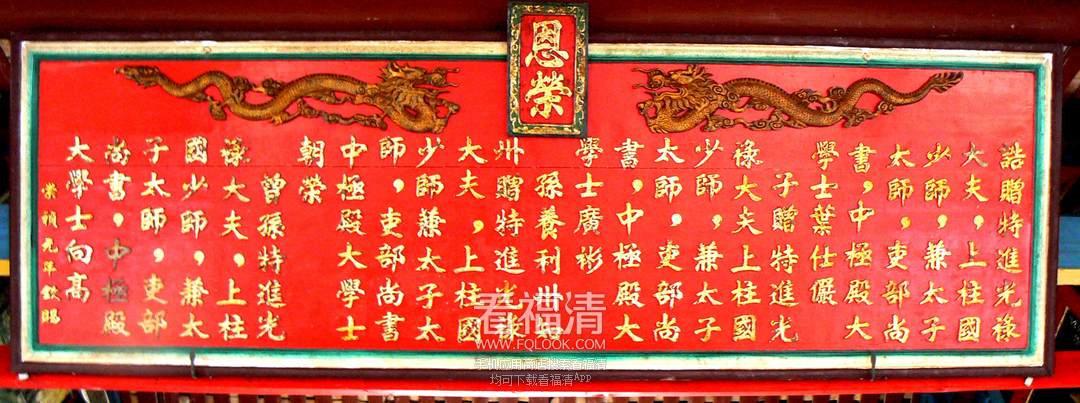 恩榮
誥贈特進光祿
大夫，上柱國
少師，兼太子
太師，吏部尚
書，中極殿大
學士葉仕儼
子贈特進光
祿大夫上柱國
少師，兼太子
太師，吏部尚
書，中極殿大
學士廣彬
孫養利州知
州贈特進光祿
大夫，上柱國
少師兼太子太
師，吏部尚書
中極殿大學士
朝榮
曾孫特進光
祿大夫，上柱
國少師，兼太
子太師，吏部
尚書，中極殿
大學士向高
崇禎元年欽賜
看福清
WWW.FQLOOK.COM
手机应用商店搜索看福清
均可下载看福清App